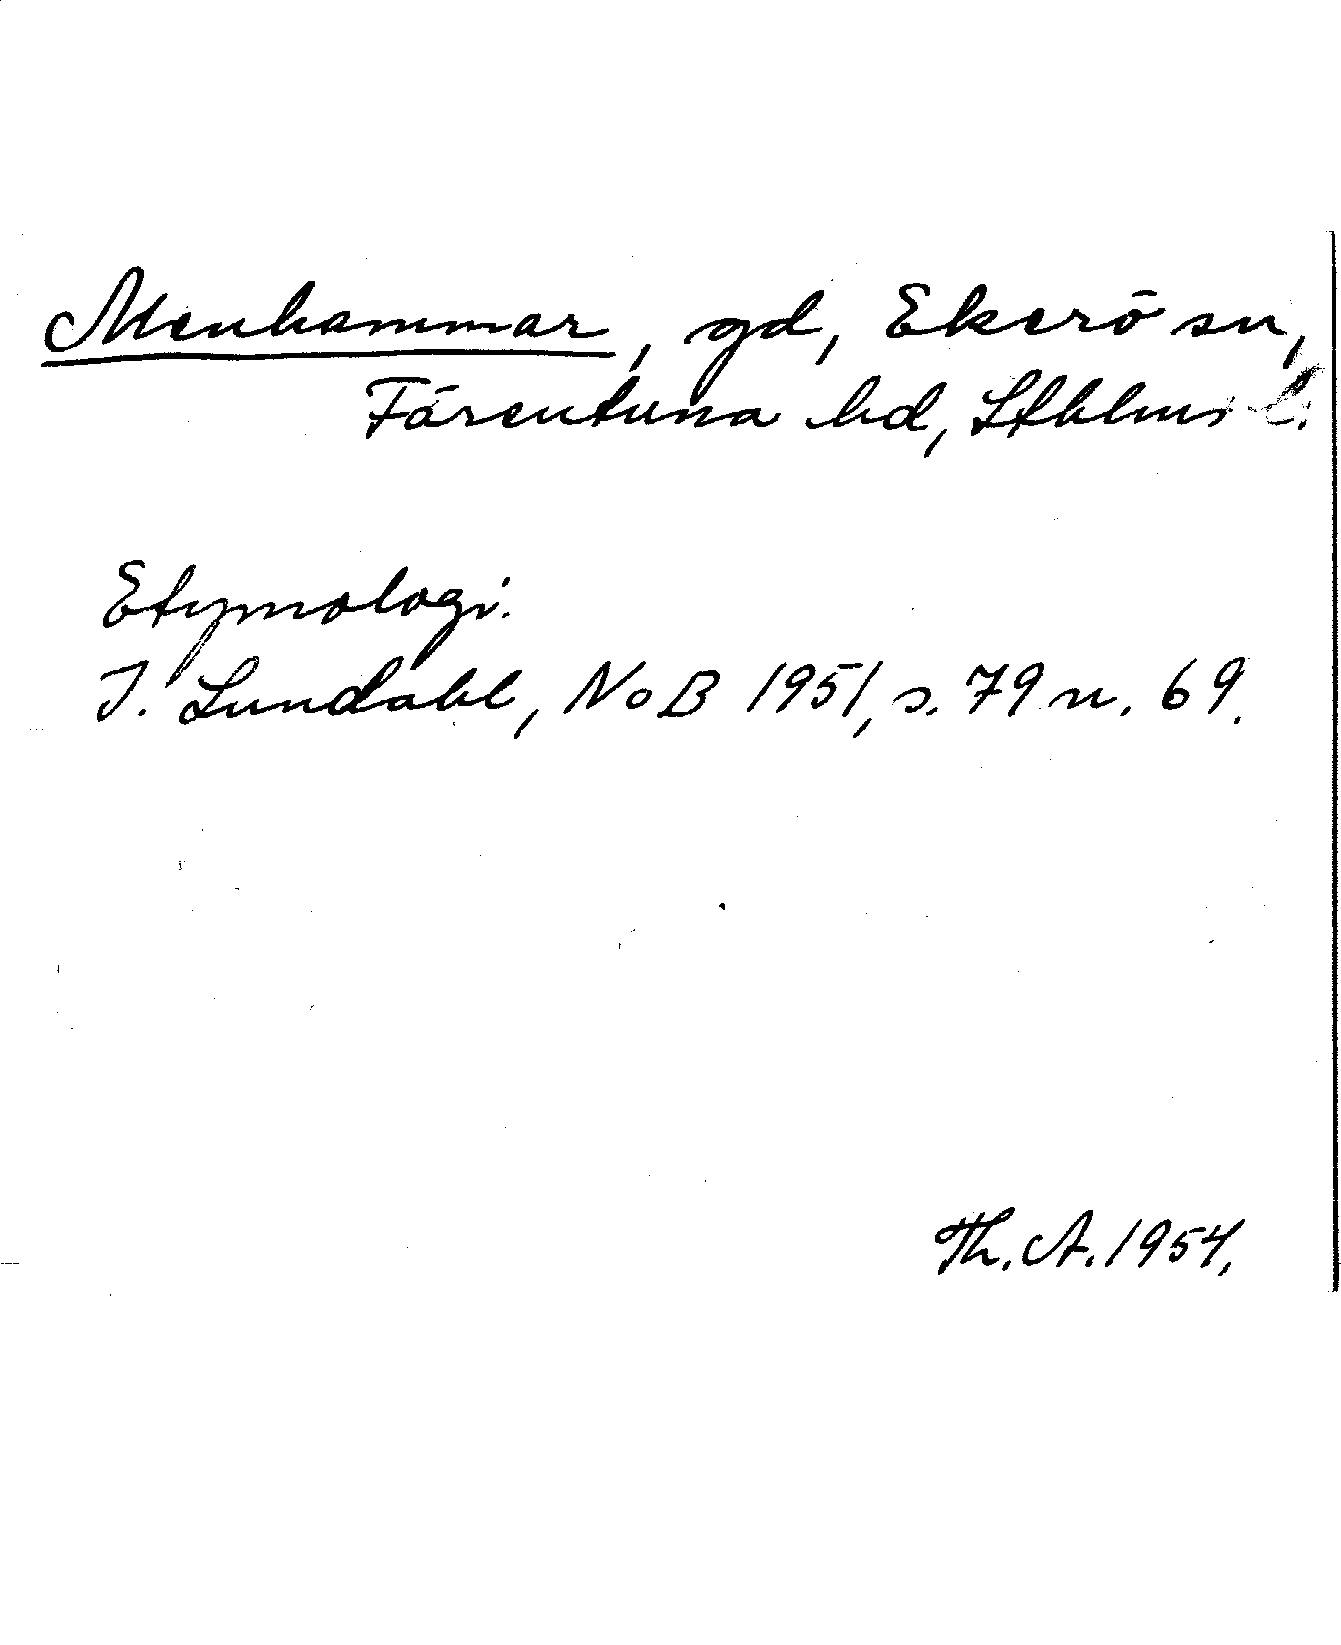 Menhammar, gd, Ekerö sn,
Färentuna hd, Sthlms l.
Etymologi.
I. Lundahl, NoB 1951, s. 79 n. 69.
Th. A. 1954.